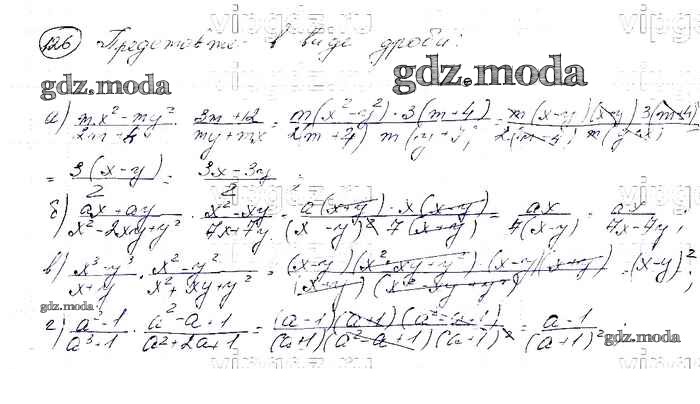 126 Представьте в виде дроби:
gdz.moda gdz.moda
а) (mx² - my²)/(2m + 8) · (3m + 12)/(my + mx) = (m(x² - y²) · 3(m + 4))/(2(m + 4) m(y + x)) = (m(x - y)(x + y) 3(m + 4))/(2(m + 4) m(y + x)) =
= 3(x - y)/2 = (3x - 3y)/2 ;
б) (ax + ay)/(x² - 2xy + y²) · (x² - xy)/(7x + 7y) = (a(x + y) · x(x - y))/((x - y)² 7(x + y)) = ax/(7(x - y)) = ax/(7x - 7y) ;
в) (x³ - y³)/(x + y) · (x² - y²)/(x² + xy + y²) = ((x - y)(x² + xy + y²)(x - y)(x + y))/((x + y)(x² + xy + y²)) = (x - y)² ;
gdz.moda
г) (a² - 1)/(a³ + 1) · (a² - a + 1)/(a² + 2a + 1) = ((a - 1)(a + 1)(a² - a + 1))/((a + 1)(a² - a + 1)(a + 1)²) = (a - 1)/(a + 1)²
gdz.moda